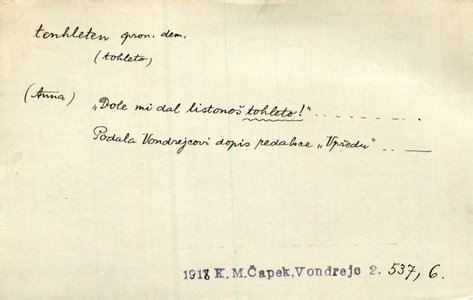 tenhleten pron. dem.
(tohleto)
(Anna) „Dole mi dal listonoš tohleto!“
Podala Vondrejcovi dopis redakce „Vpředu“
1918 K.M.Čapek,Vondrejc 2. 537, 6.